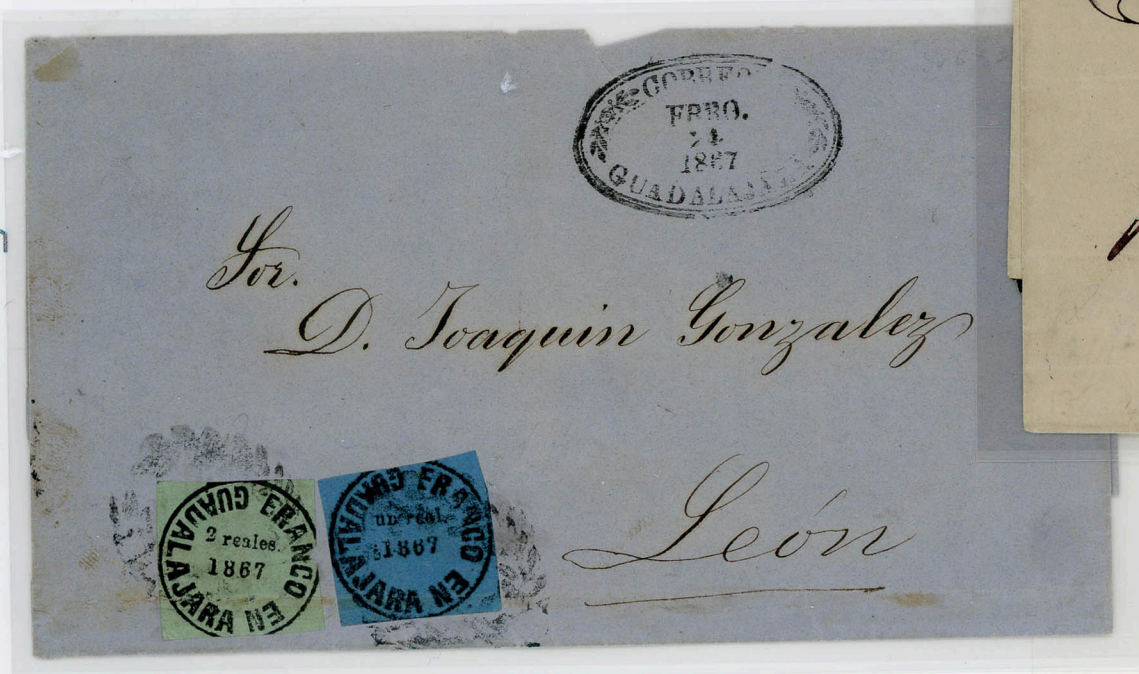 CORREO
FBRO.
24
1867
GUADALAJARA
Sor.
D. Joaquin Gonzalez
León
FRANCO EN GUADALAJARA
2 reales.
1867
FRANCO EN GUADALAJARA
un real.
1867